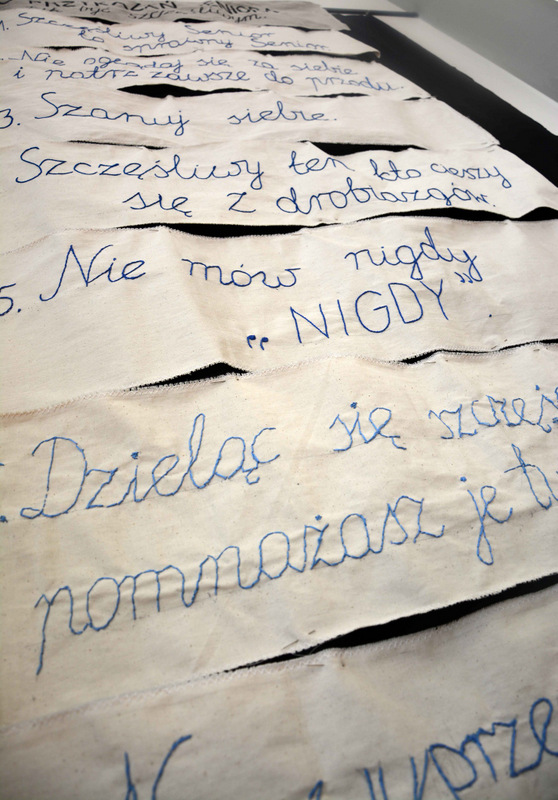 1. Szczęśliwy Senior
to sprawny Senior
Nie oglądaj się za siebie
i patrz zawsze do przodu.
3. Szanuj siebie.
Szczęśliwy ten kto cieszy
się z drobiazgów.
5. Nie mów nigdy
„NIGDY”.
. Dzieląc się szczęś
pomnażasz je